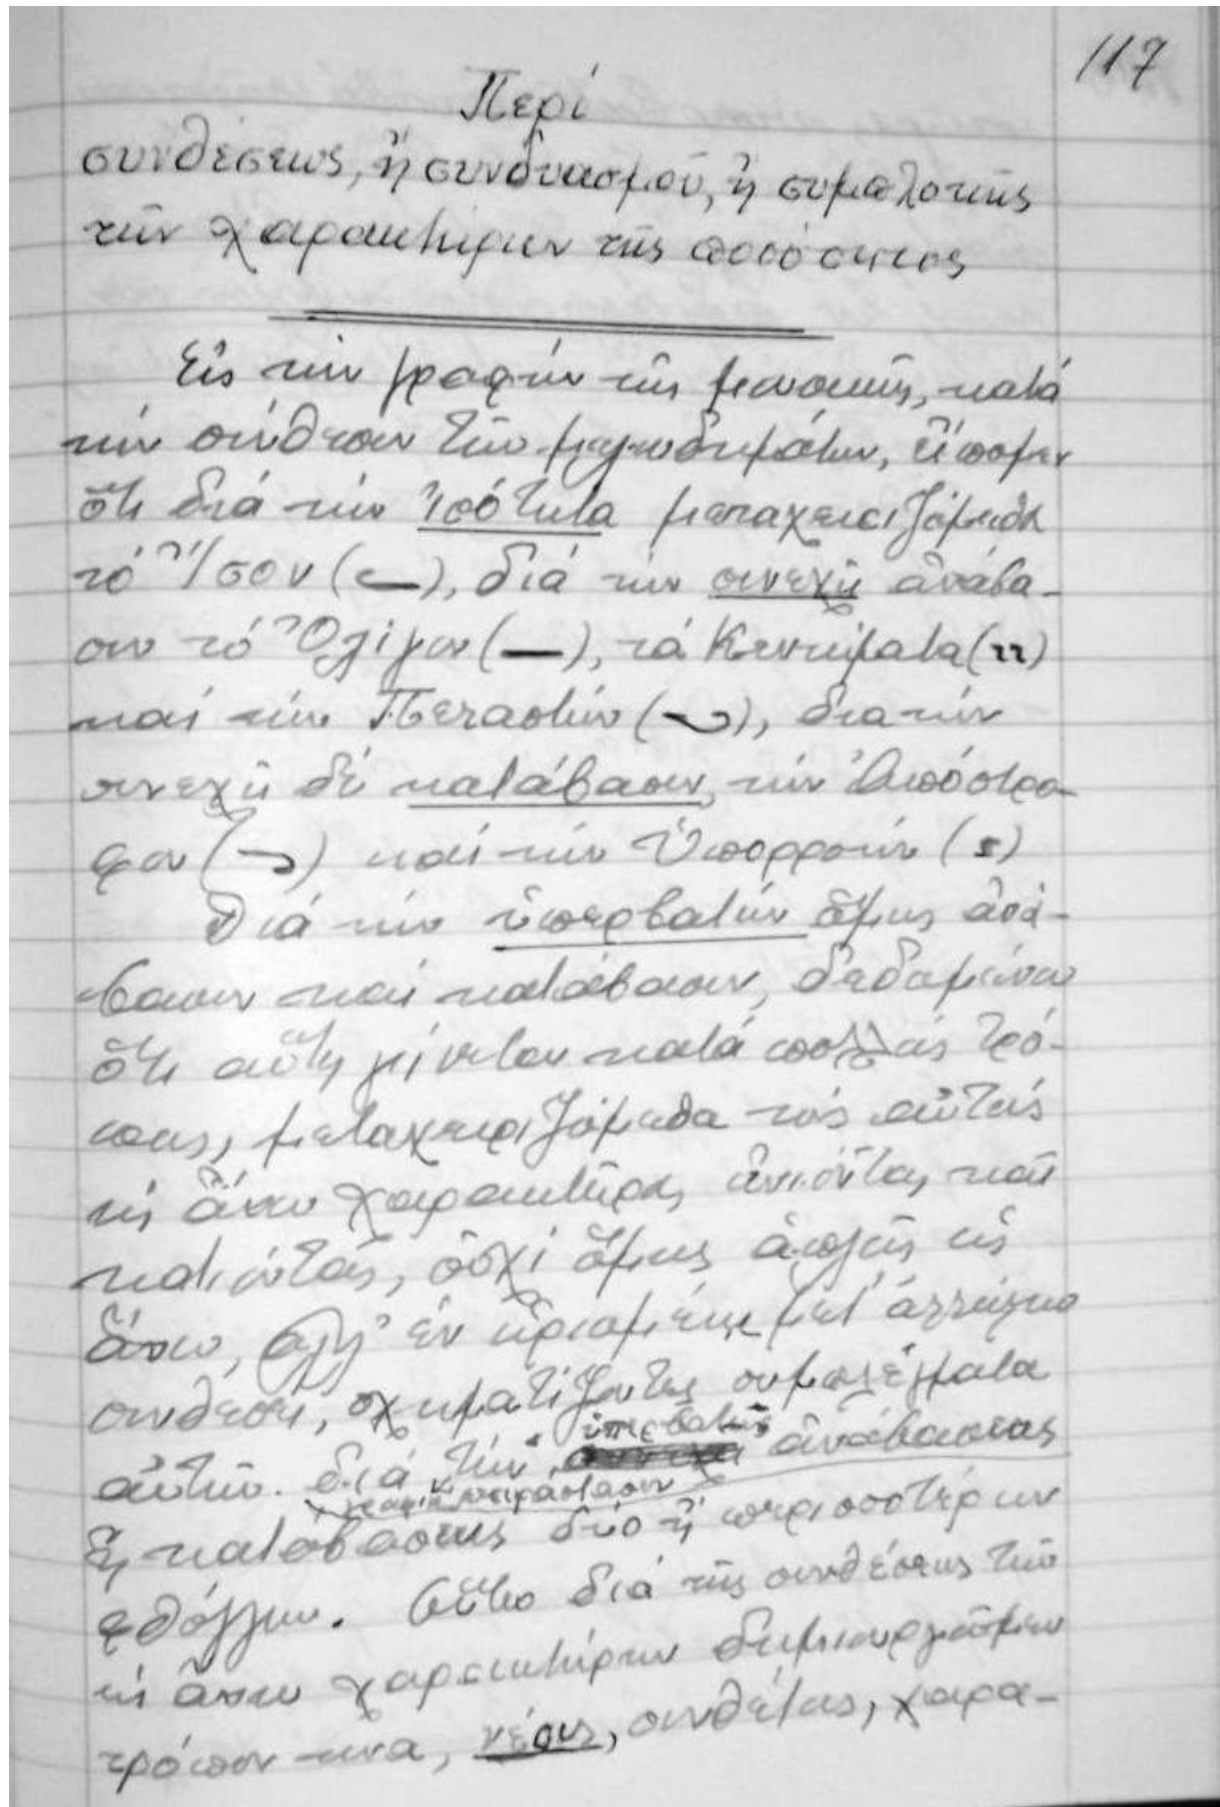 117
Περί
συνθέσεως, ἤ συνδυασμοῦ, ἤ συμπλοκῆς
τῶν χαρακτήρων τῆς ποσότητος
Εἰς τήν γραφήν τῆς μουσικῆς, κατά
τήν σύνθεσιν τῶν μελωδημάτων, εἴπομεν
ὅτι διά τήν ἰσότητα μεταχειριζόμεθα
τό Ἴσον (), διά τήν συνεχῆ ἀνάβα-
σιν τό Ὀλίγον (), τά Κεντήματα ()
καί τήν Πεταστήν (), διά τήν
συνεχῆ δέ κατάβασιν, τήν Ἀπόστρο-
φον () καί τήν Ὑπορροήν ()
Διά τήν ὑπερβατήν ὅμως ἀνά-
βασιν καί κατάβασιν, δεδομένου
ὅτι αὕτη γίνεται κατά πολλούς τρό-
πους, μεταχειριζόμεθα τούς αὐτούς
ὡς ἄνω χαρακτῆρας ἀνιόντας καί
κατιόντας, οὐχί ὅμως ἁπλῶς ὡς
ἄνω, ἀλλ' ἐν ὡρισμένῃ μετ' ἀλλήλων
συνθέσει, σχηματίζοντες συμπλέγματα
αὐτῶν διά τήν ὑπερβατῆς ἀναβάσεως
γραφικήν παράστασιν
ἤ καταβάσεως δύο ἤ περισσοτέρων
φθόγγων. Οὕτω διά τῆς συνθέσεως τῶν
ὡς ἄνω χαρακτήρων δημιουργοῦμεν
τρόπον τινα, νέους, συνθέτους, χαρα-